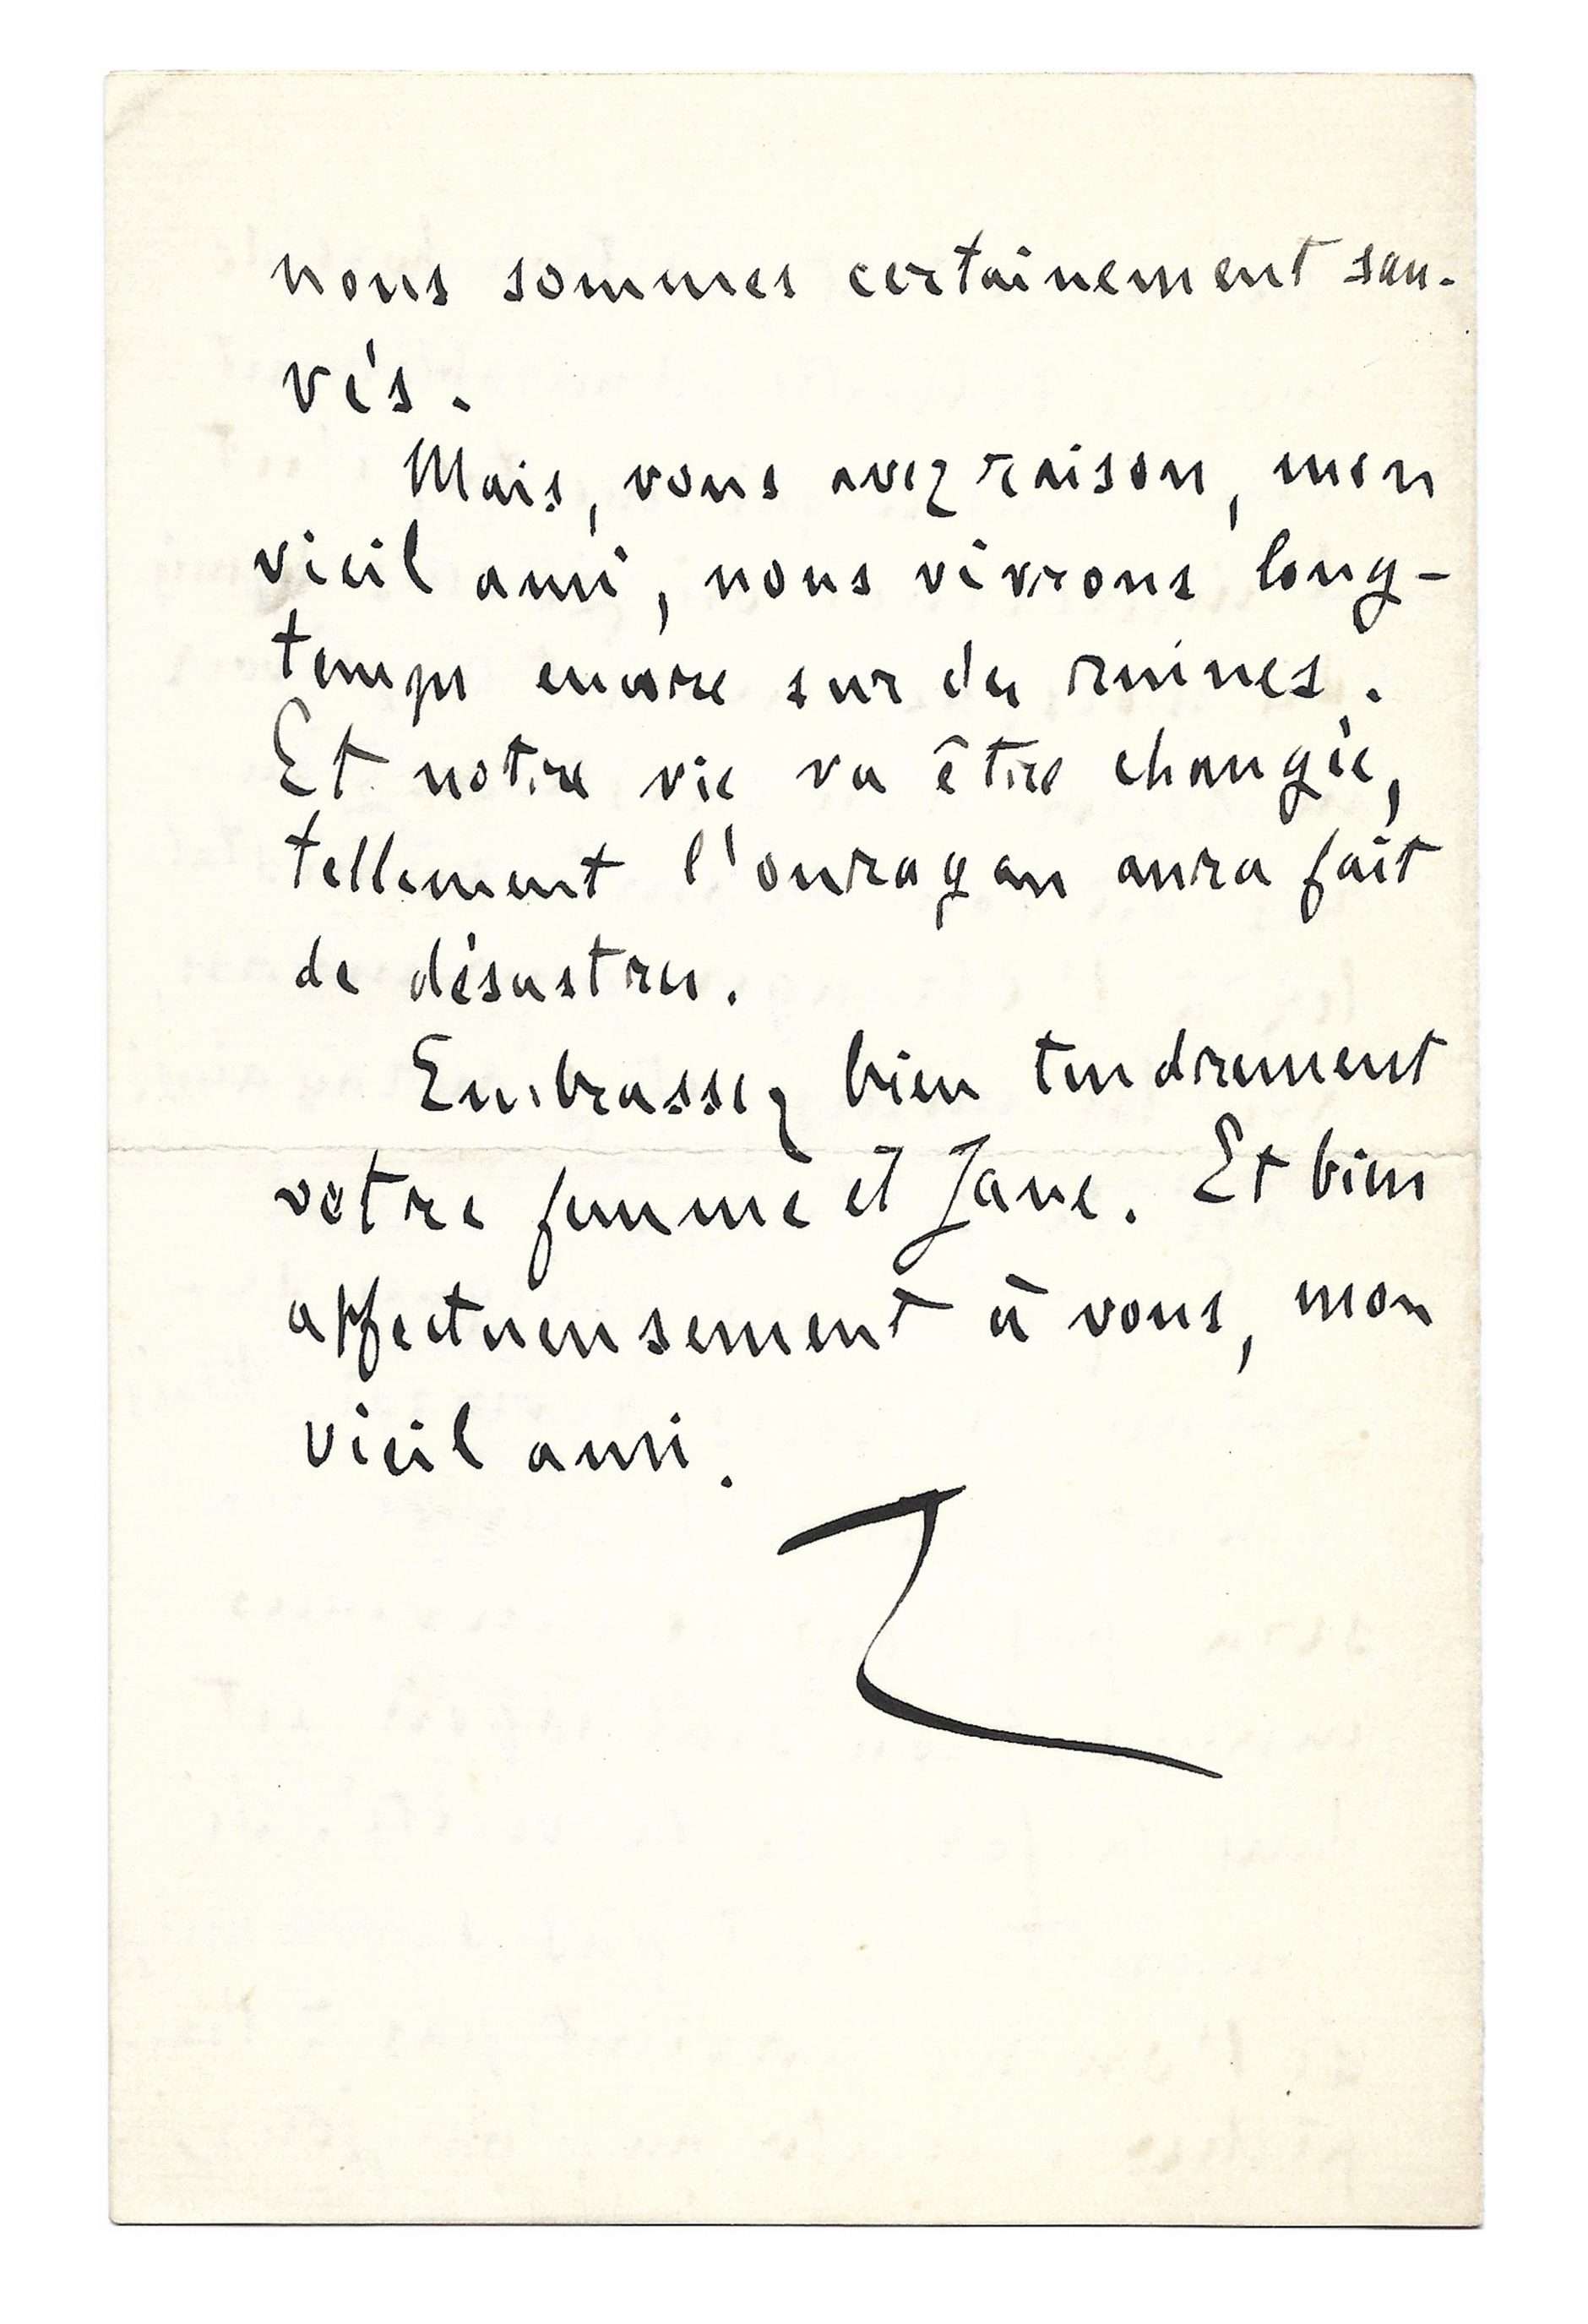 nous sommes certainement sau-
vés.
Mais, vous avez raison, mon
vieil ami, nous vivrons long-
temps encore sur des ruines.
Et notre vie va être changée,
tellement l'ouragan aura fait
de désastres.
Embrassez bien tendrement
votre femme et Jane. Et bien
affectueusement à vous, mon
vieil ami.